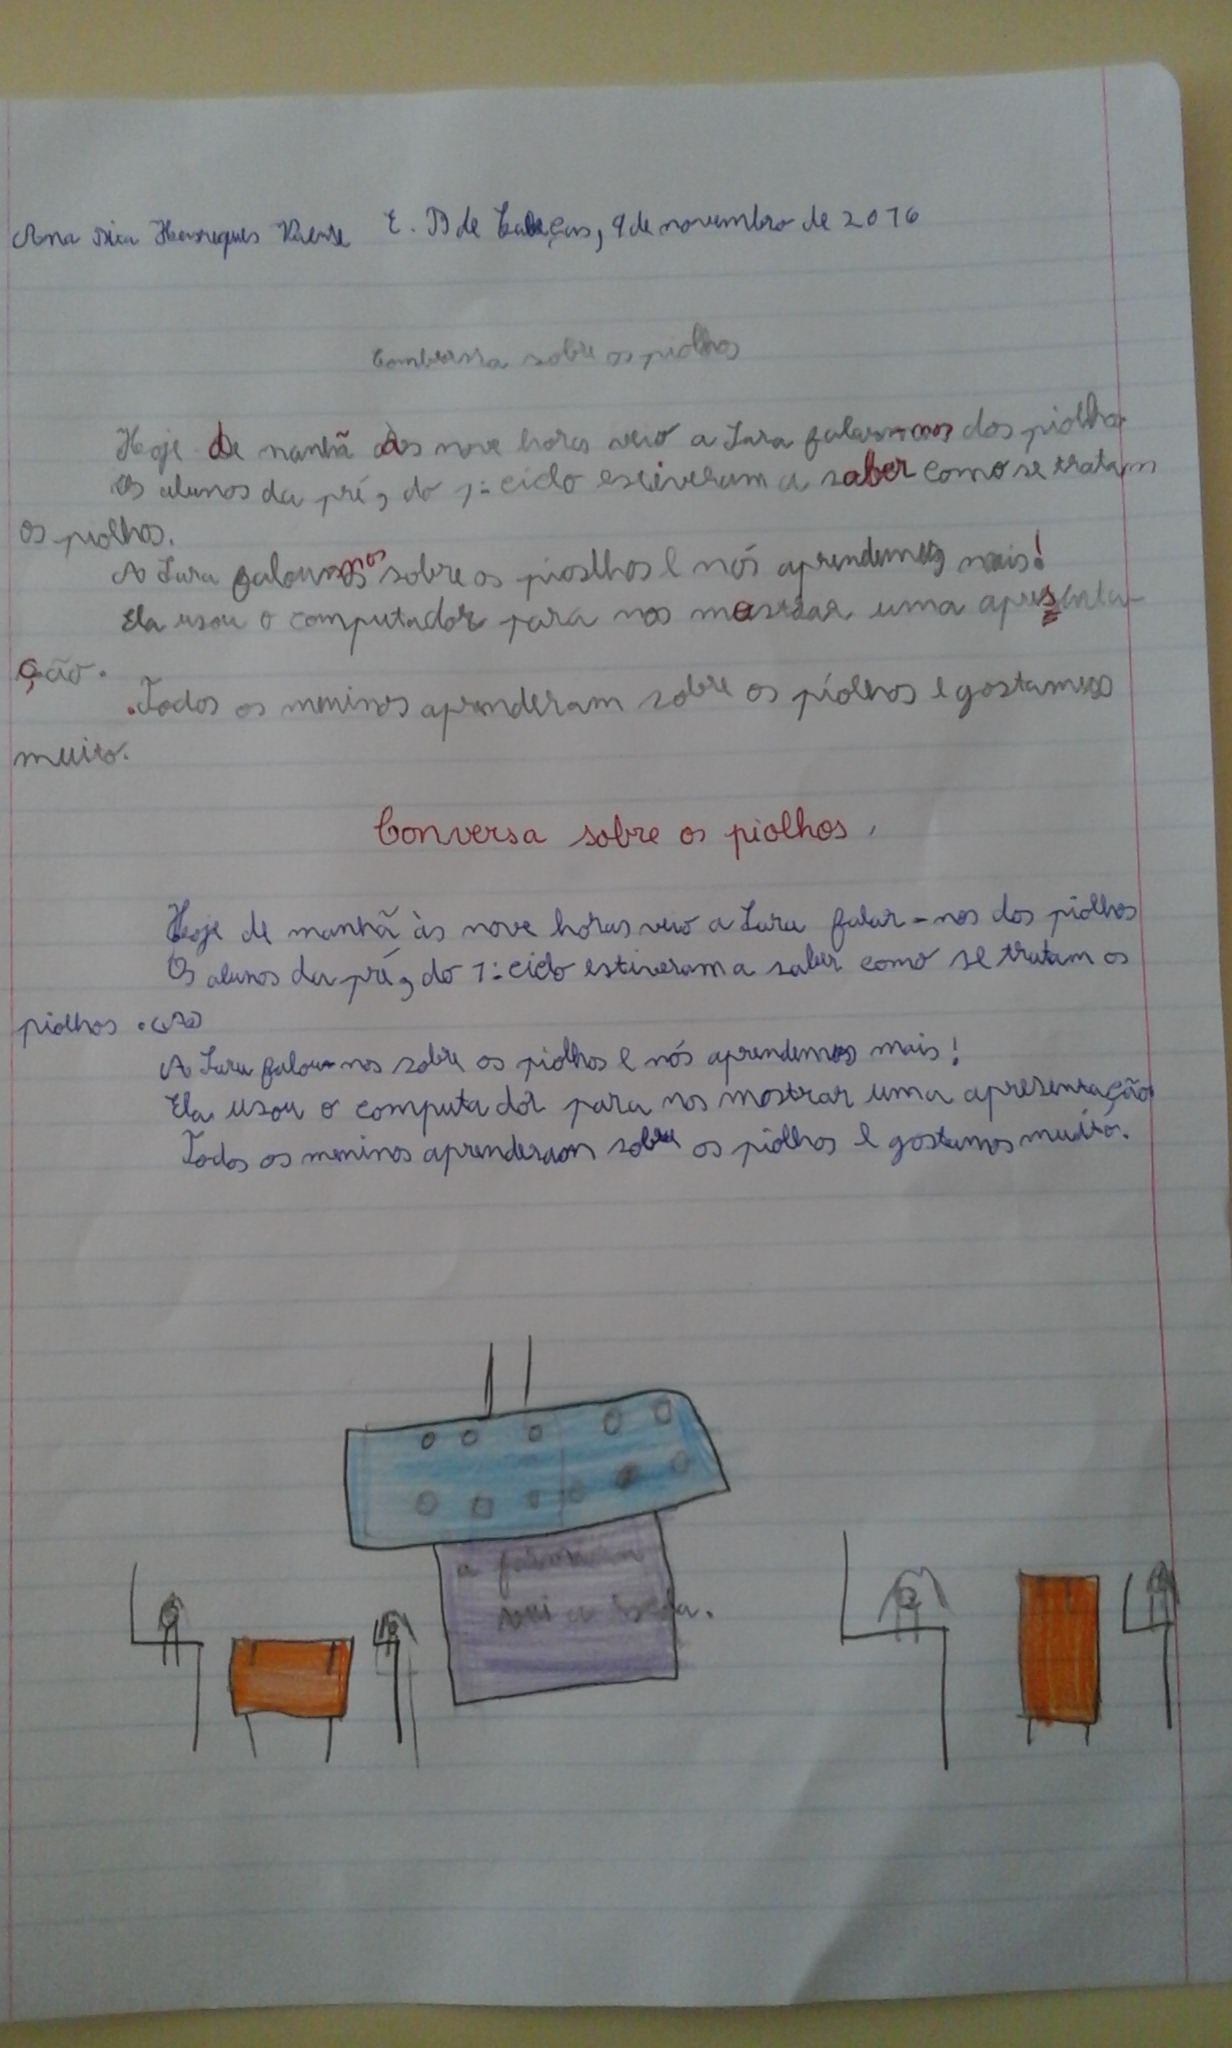 Ana Henriques E. B de Cabeças, 9 de novembro de 2016
Combersra sobre os piolhos
Hoje de manhã às nove horas veio a Sara falar-nos dos piolho
Os alunos da pré, do 1º ciclo estiveram a saber como se tratam
os piolhos.
A Sara falou-nos sobre os piolhos e nós aprendemos mais!
Ela usou o computador para nos mostrar uma apresenta-
ção.
Todos os meninos aprenderam sobre os piolhos e gostamos
muito.
Conversa sobre os piolhos.
Hoje de manhã às nove horas veio a Sara falar-nos dos piolhos
Os alunos da pré, do 1º ciclo estiveram a saber como se tratam os
piolhos.
A Sara falou-nos sobre os piolhos e nós aprendemos mais!
Ela usou o computador para nos mostrar uma apresentação
Todos os meninos aprenderam sobre os piolhos e gostamos muito.
a
a